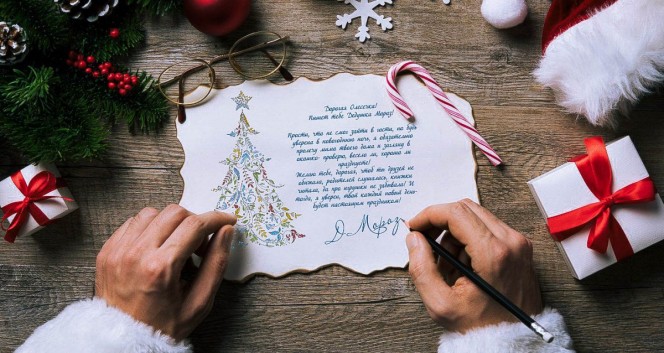 Дорогая Олесечка!
Пишет тебе Дедушка Мороз!
Прости, что не смог зайти в гости, но будь
уверена в новогоднюю ночь, я обязательно
пролечу мимо твоего дома и загляну в
окошко- проверю, весело ли, хорошо ли
празднуете!
Желаю тебе, дорогая, чтоб ты друзей не
обижала, родителей слушалась, книжки
читала, да про игрушки не забывала! И
тогда, я уверен, твой каждый новый день-
будет настоящим праздником!
Д. Мороз